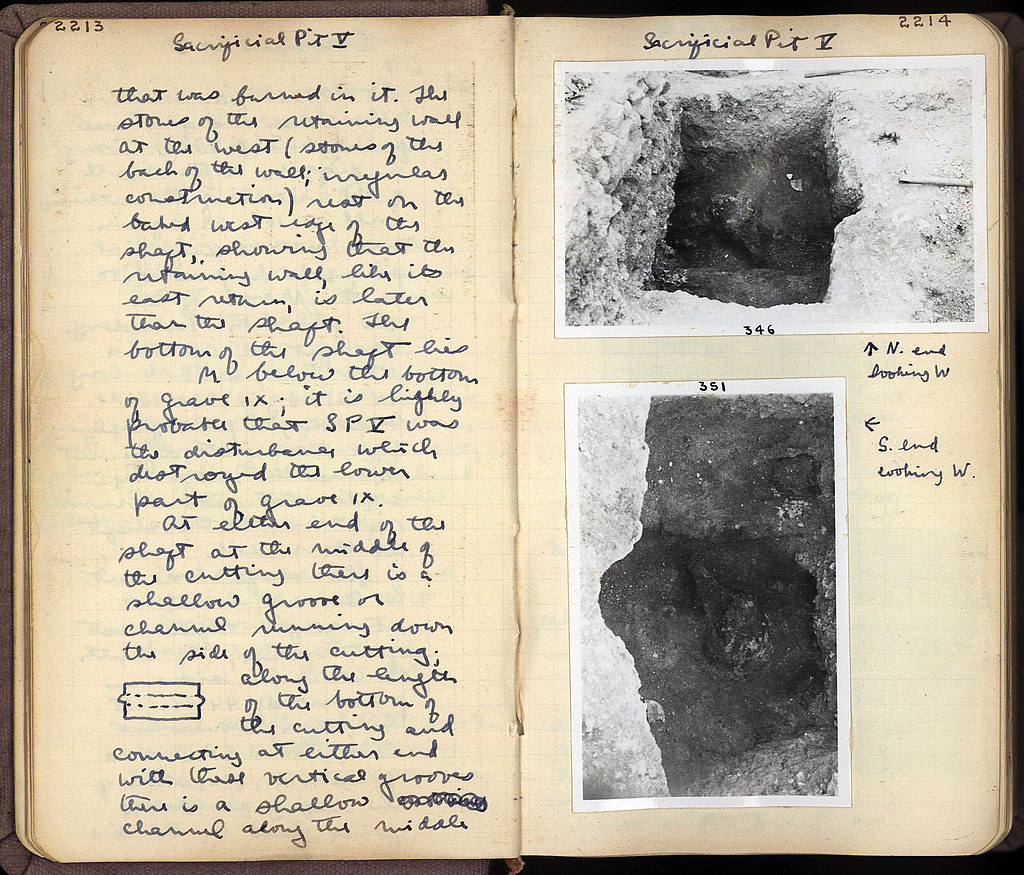 2213
Sacrificial Pit V
that was burned in it. The
stones of the retaining wall
at the west (stones of the
back of the wall; irregular
construction) rest on the
baked west edge of the
shaft, showing that the
retaining wall, like its
east return, is later
than the shaft. The
bottom of the shaft lies
M below the bottom
of grave IX; it is highly
probable that SP V was
the disturbance which
destroyed the lower
part of grave IX.
At either end of the
shaft at the middle of
the cutting there is a
shallow groove or
channel running down
the side of the cutting;
along the length
of the bottom of
the cutting and
connecting at either end
with these vertical grooves
there is a shallow
channel along the middle
2214
Sacrificial Pit V
346
↑ N. end
looking W
351
←
S. end
looking W.